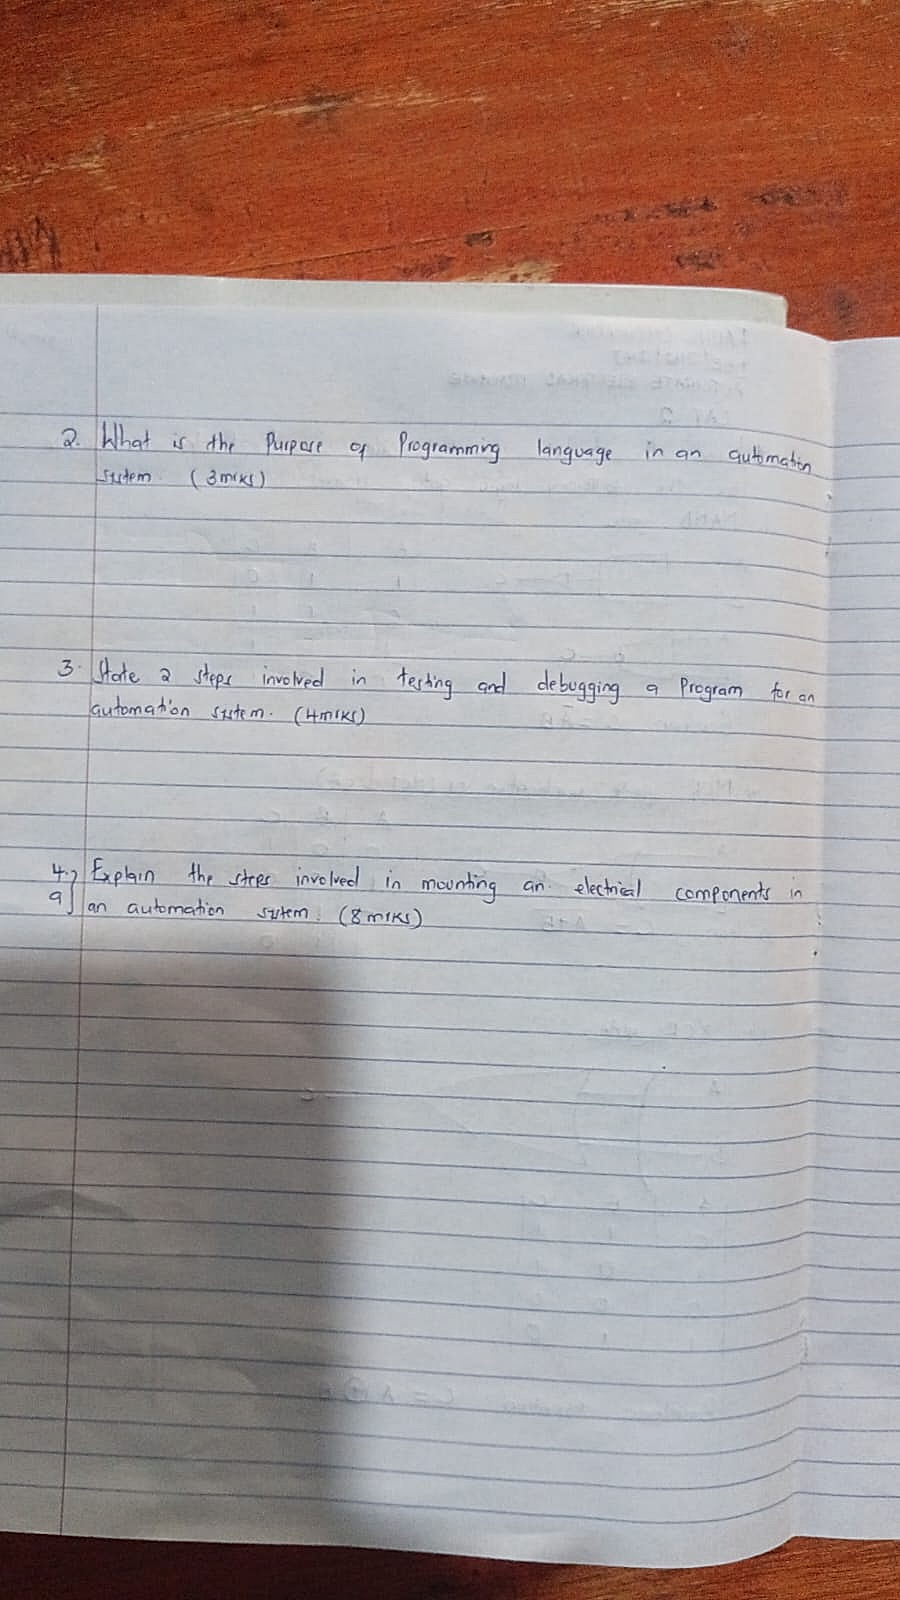 2. What is the Purpose of Programming language in an automation
system. (3mrks)
3. State 2 steps involved in testing and debugging a Program for an
automation system. (4mrks)
4.) Explain the steps involved in mounting an electrical components in
a) an automation system. (8mrks)